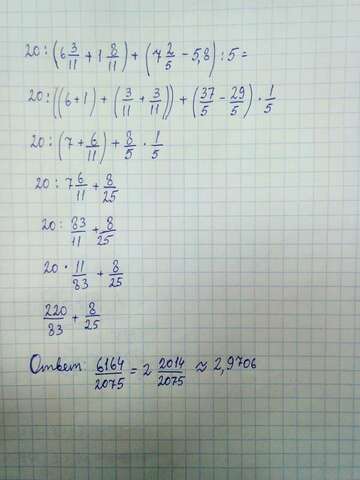 20 : (6 3/11 + 1 8/11) + (7 2/5 − 5,8) : 5 =
20 : ((6+1) + (3/11 + 3/11)) + (37/5 − 29/5) · 1/5
20 : (7 + 6/11) + 8/5 · 1/5
20 : 7 6/11 + 8/25
20 : 83/11 + 8/25
20 · 11/83 + 8/25
220/83 + 8/25
Ответ: 6164/2075 = 2 2014/2075 ≈ 2,9706